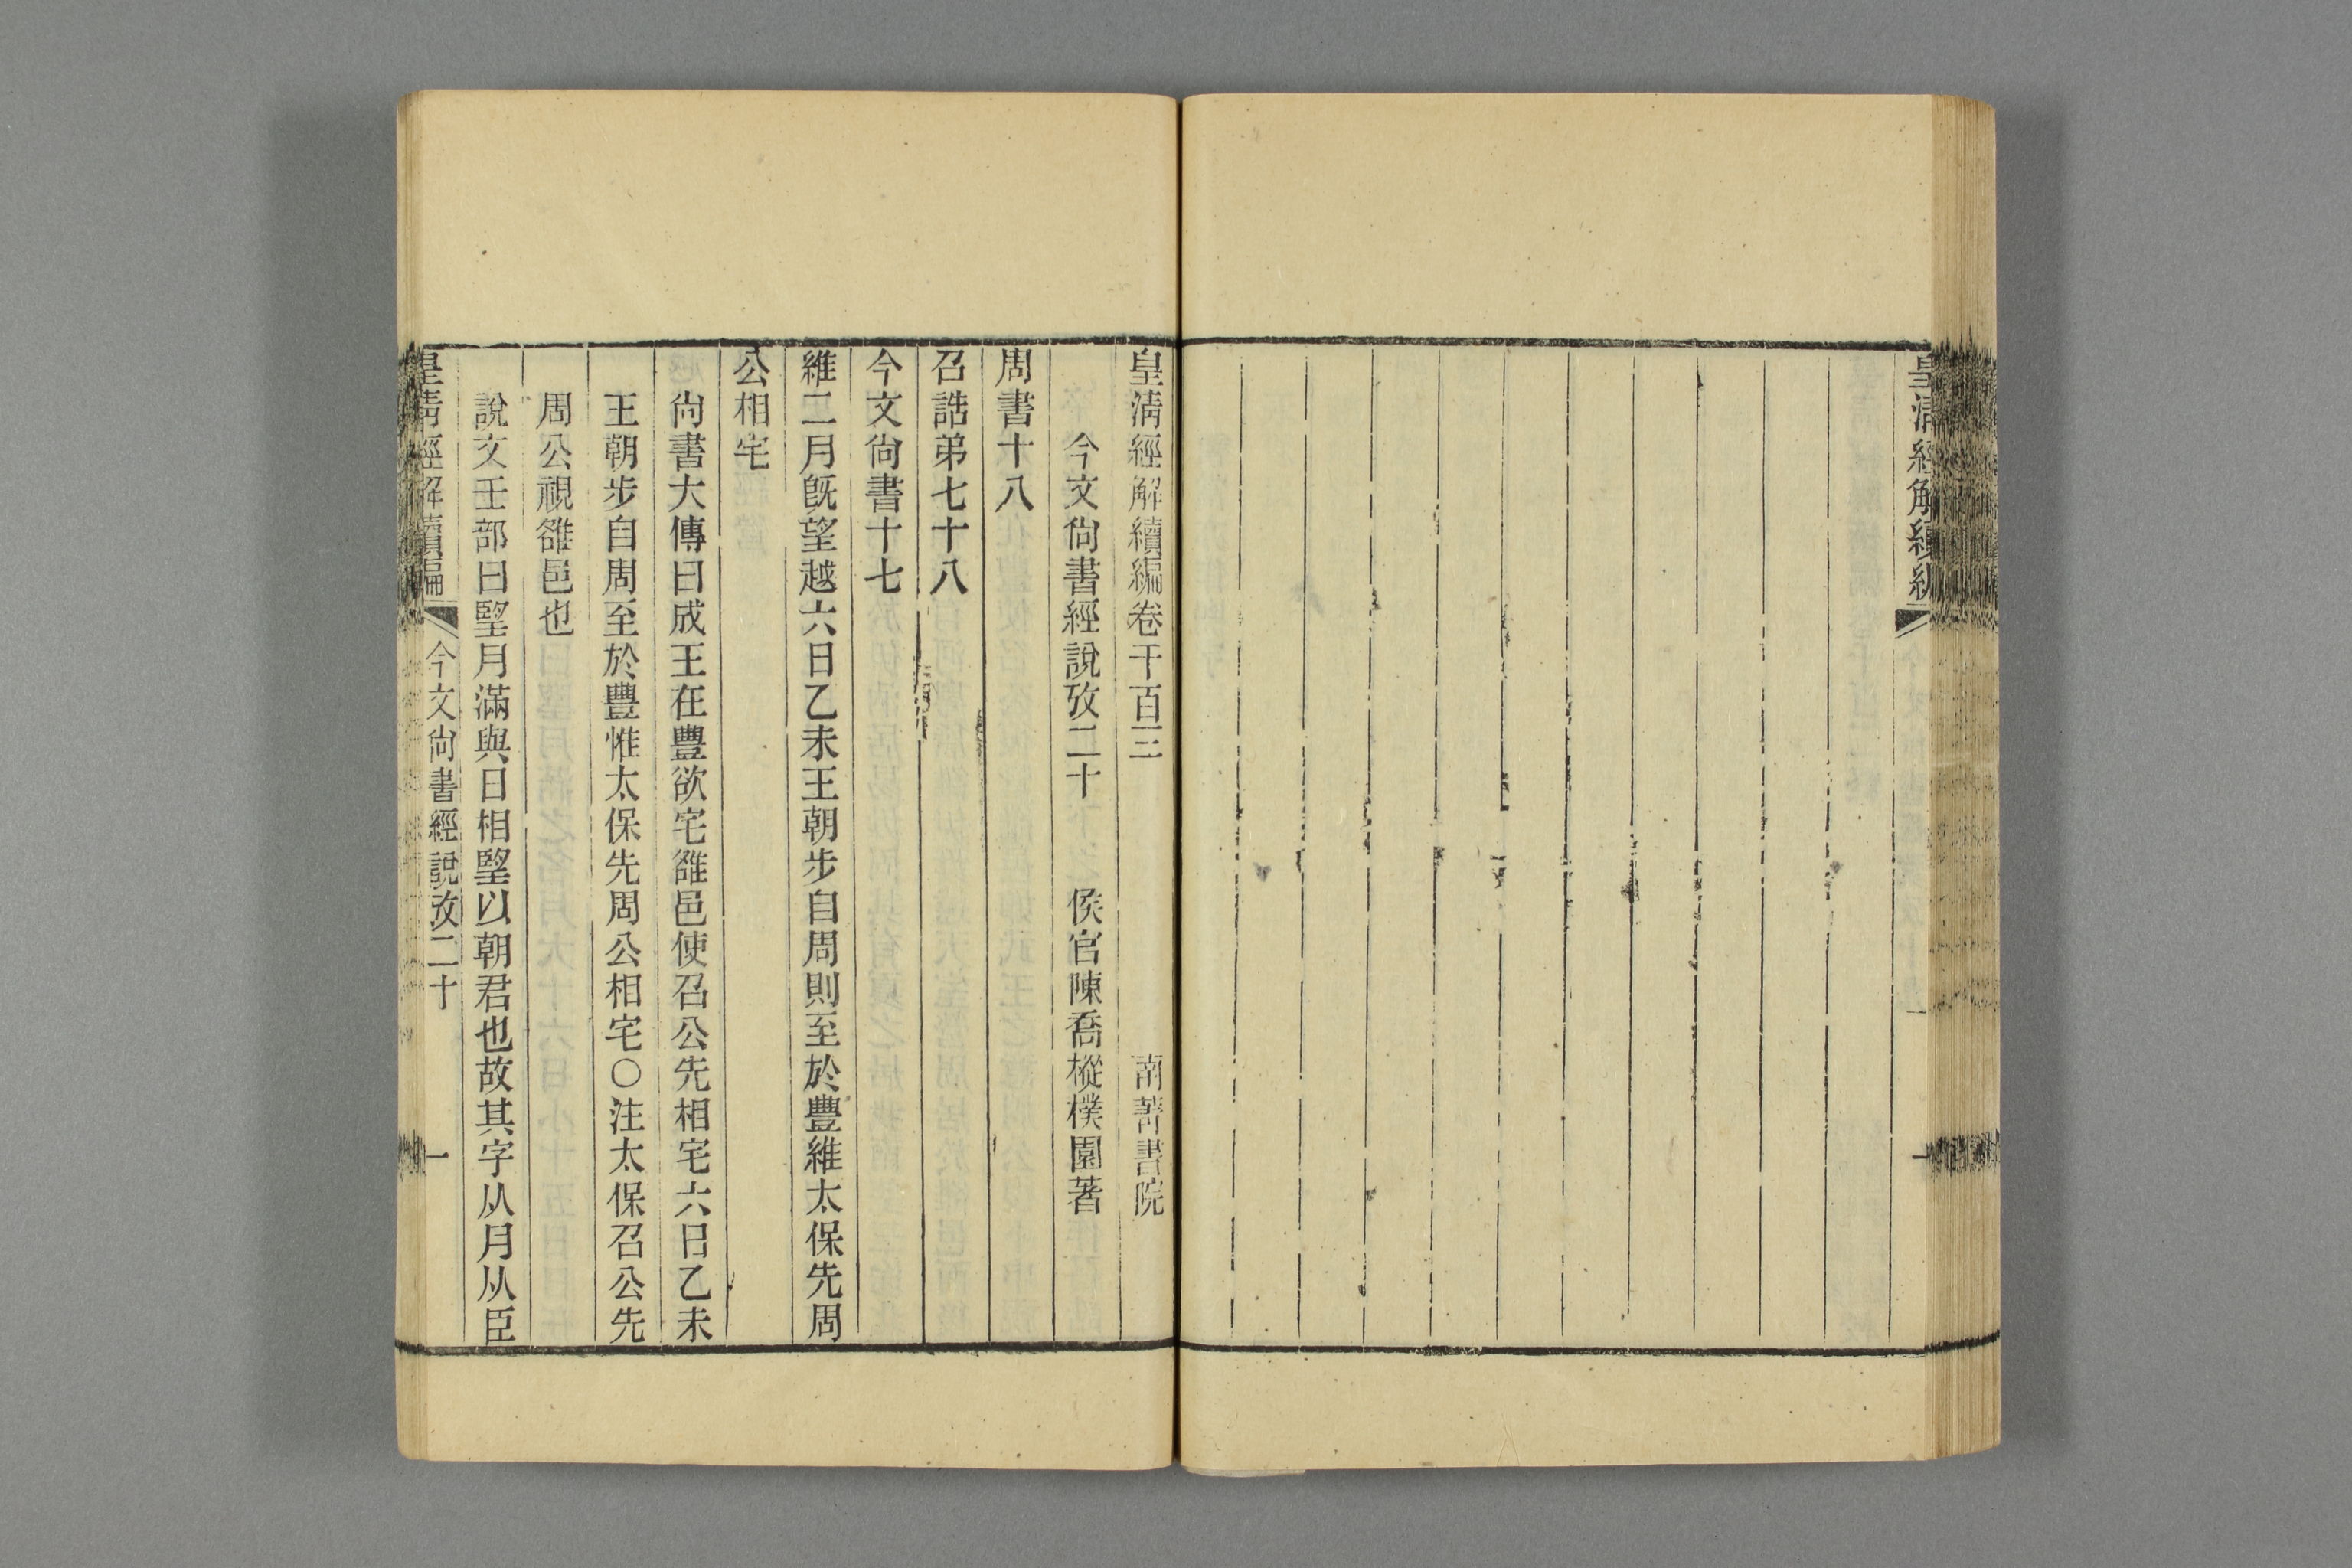 皇清經解續編
一
皇清經解續編卷千百三 南菁書院
今文尙書經說攷二十 侯官陳喬樅樸園著
周書十八
召誥弟七十八
今文尙書十七
維二月旣望越六日乙未王朝步自周則至於豐維太保先周
公相宅
尙書大傳曰成王在豐欲宅雒邑使召公先相宅六日乙未
王朝步自周至於豐惟太保先周公相宅〇注太保召公先
周公視雒邑也
說文壬部曰朢月滿與日相朢以朝君也故其字从月从臣
皇清經解續編 今文尙書經說攷二十 一